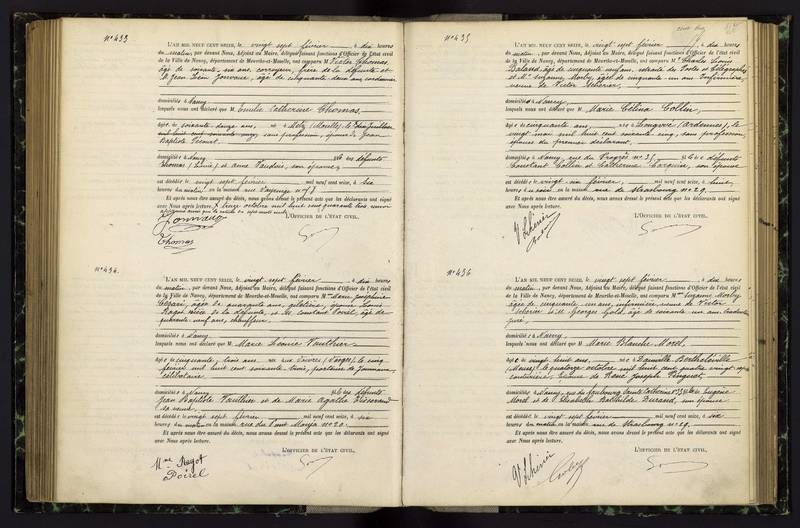 N° 433
L'AN MIL NEUF CENT SEIZE, le vingt sept février à dix heures
du matin, par devant Nous, Adjoint au Maire, délégué faisant fonctions d'Officier de l'état civil
de la Ville de Nancy, département de Meurthe-et-Moselle, ont comparu M. Victor Thomas,
âgé de soixante-six ans, frère de la défunte et
M. Jean Léon âgé de cinquante deux ans cordonnier
domiciliés à Nancy
lesquels nous ont déclaré que M. Emilie Catherine Thomas,
âgée de soixante douze ans, née à Metz (Moselle), le
sans profession, épouse de Jean
Baptiste
domiciliée à Nancy fille des défunts
Thomas (Louis) et Anne son épouse
est décédée le vingt sept février mil neuf cent seize, à six
heures du matin en la maison rue n° 78
Et après nous être assuré du décès, nous avons dressé le présent acte que les déclarants ont signé
avec Nous après lecture. X treize octobre mil huit cent quarante trois
L'OFFICIER DE L'ÉTAT CIVIL,
Thomas
N° 434.
L'AN MIL NEUF CENT SEIZE, le vingt sept février à dix heures
du matin, par devant Nous, Adjoint au Maire, délégué faisant fonctions d'Officier de l'état civil
de la Ville de Nancy, département de Meurthe-et-Moselle, ont comparu Mme Marie Joséphine
âgée de quarante ans, épouse Louis
Ragot nièce de la défunte, et M. Constant Poirel, âgé de
quarante neuf ans, chauffeur,
domiciliés à Nancy
lesquels nous ont déclaré que M. Marie Léonie Vauthier
âgée de cinquante trois ans née (Vosges), le cinq
février mil huit cent soixante trois, porteuse de journaux,
célibataire
domiciliée à Nancy fille des défunts
Jean Baptiste Vauthier et de Marie Agathe
sa veuve
est décédée le vingt sept février mil neuf cent seize, à six
heures du matin en la maison rue du Pont Mouja n° 20
Et après nous être assuré du décès, nous avons dressé le présent acte que les déclarants ont signé
avec Nous après lecture.
L'OFFICIER DE L'ÉTAT CIVIL,
Mme Ragot
Poirel
N° 435
L'AN MIL NEUF CENT SEIZE, le vingt sept février à dix heures
du matin, par devant Nous, Adjoint au Maire, délégué faisant fonctions d'Officier de l'état civil
de la Ville de Nancy, département de Meurthe-et-Moselle, ont comparu M. Charles Louis
âgé de cinquante neuf ans, retraité des Postes et Télégraphes
et Me Suzanne Morby, âgée de cinquante un ans infirmière,
veuve de Victor
domiciliés à Nancy
lesquels nous ont déclaré que M. Marie Célina Collin,
âgée de cinquante ans, née à (Ardennes), le
vingt mai mil huit cent soixante cinq, sans profession,
épouse du premier déclarant.
domiciliée à Nancy, rue du Progrès n° 35 fille de défunts
Constant Collin et Catherine son épouse
est décédée le vingt six février, mil neuf cent seize, à huit
heures du soir en la maison rue de Strasbourg n° 29.
Et après nous être assuré du décès, nous avons dressé le présent acte que les déclarants ont signé
avec Nous après lecture.
L'OFFICIER DE L'ÉTAT CIVIL,
N° 436
L'AN MIL NEUF CENT SEIZE, le vingt sept février à dix heures
du matin, par devant Nous, Adjoint au Maire, délégué faisant fonctions d'Officier de l'état civil
de la Ville de Nancy, département de Meurthe-et-Moselle, ont comparu Mme Suzanne Morby
âgée de cinquante un ans, infirmière, veuve de Victor
et M. Georges âgé de soixante un ans
domiciliés à Nancy,
lesquels nous ont déclaré que M. Marie Blanche Morel
âgée de vingt huit ans, née à Dainville Bertheléville
(Meuse), le quatorze octobre mil huit cent quatre vingt sept
couturière, épouse de René Joseph
domiciliée à Nancy, rue du faubourg Sainte Catherine fille de Eugène
Morel et de Elisabeth Bathilde son épouse
est décédée le vingt sept février mil neuf cent seize, à six
heures du matin en la maison rue de Strasbourg n° 29.
Et après nous être assuré du décès, nous avons dressé le présent acte que les déclarants ont signé
avec Nous après lecture.
L'OFFICIER DE L'ÉTAT CIVIL,